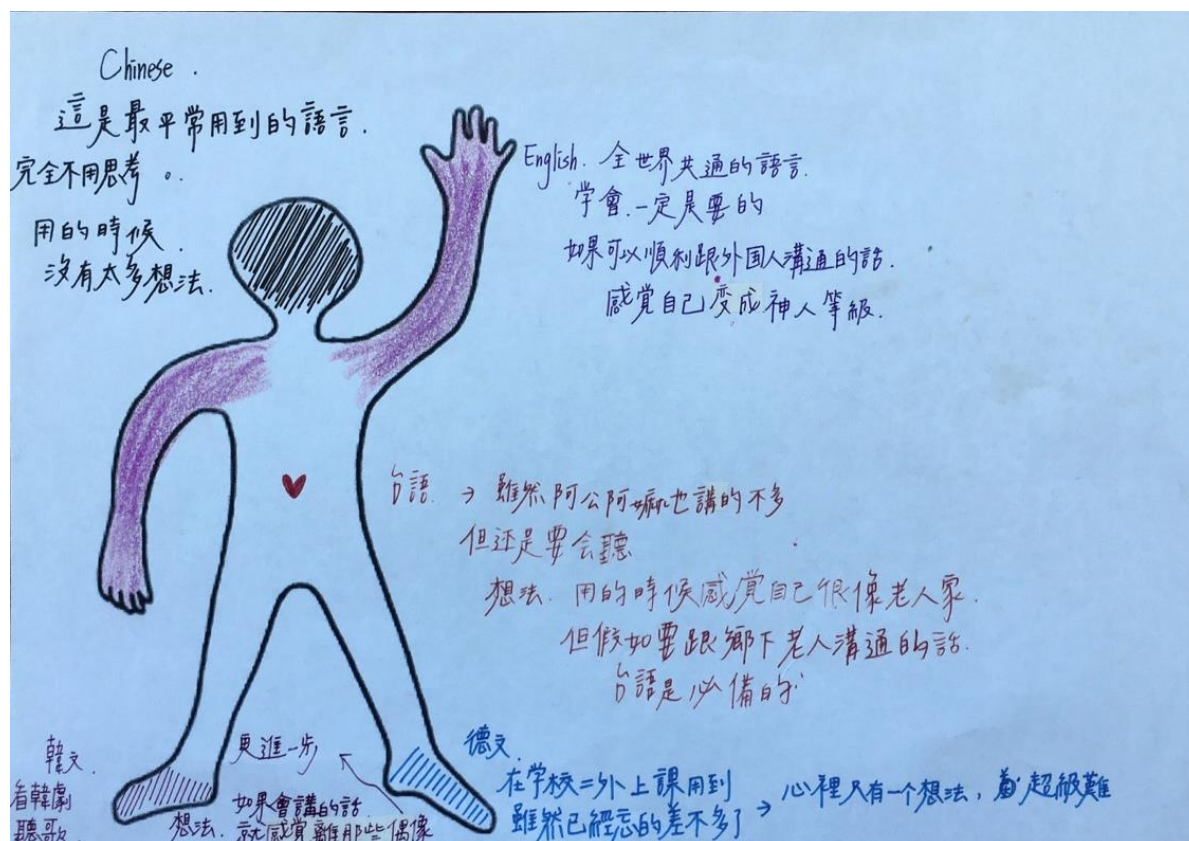 Chinese .
這是最平常用到的語言.
完全不用思考。
用的時候.
沒有太多想法.
English. 全世界共通的語言.
学會.一定是要的
如果可以順利跟外国人溝通的話.
感覚自己変成神人等級.
台語. → 雖然阿公阿嬤也講的不多
但还是要会聽
想法. 用的時候感覚自己很像老人家.
但假如要跟鄉下老人溝通的話.
台語是必備的
韓文.
看韓劇
聽歌
更進一步
想法.
如果會講的話
就感覚離那些偶像
德文
在学校二外上課用到
雖然已經忘的差不多了
→ 心裡只有一个想法,
超級難